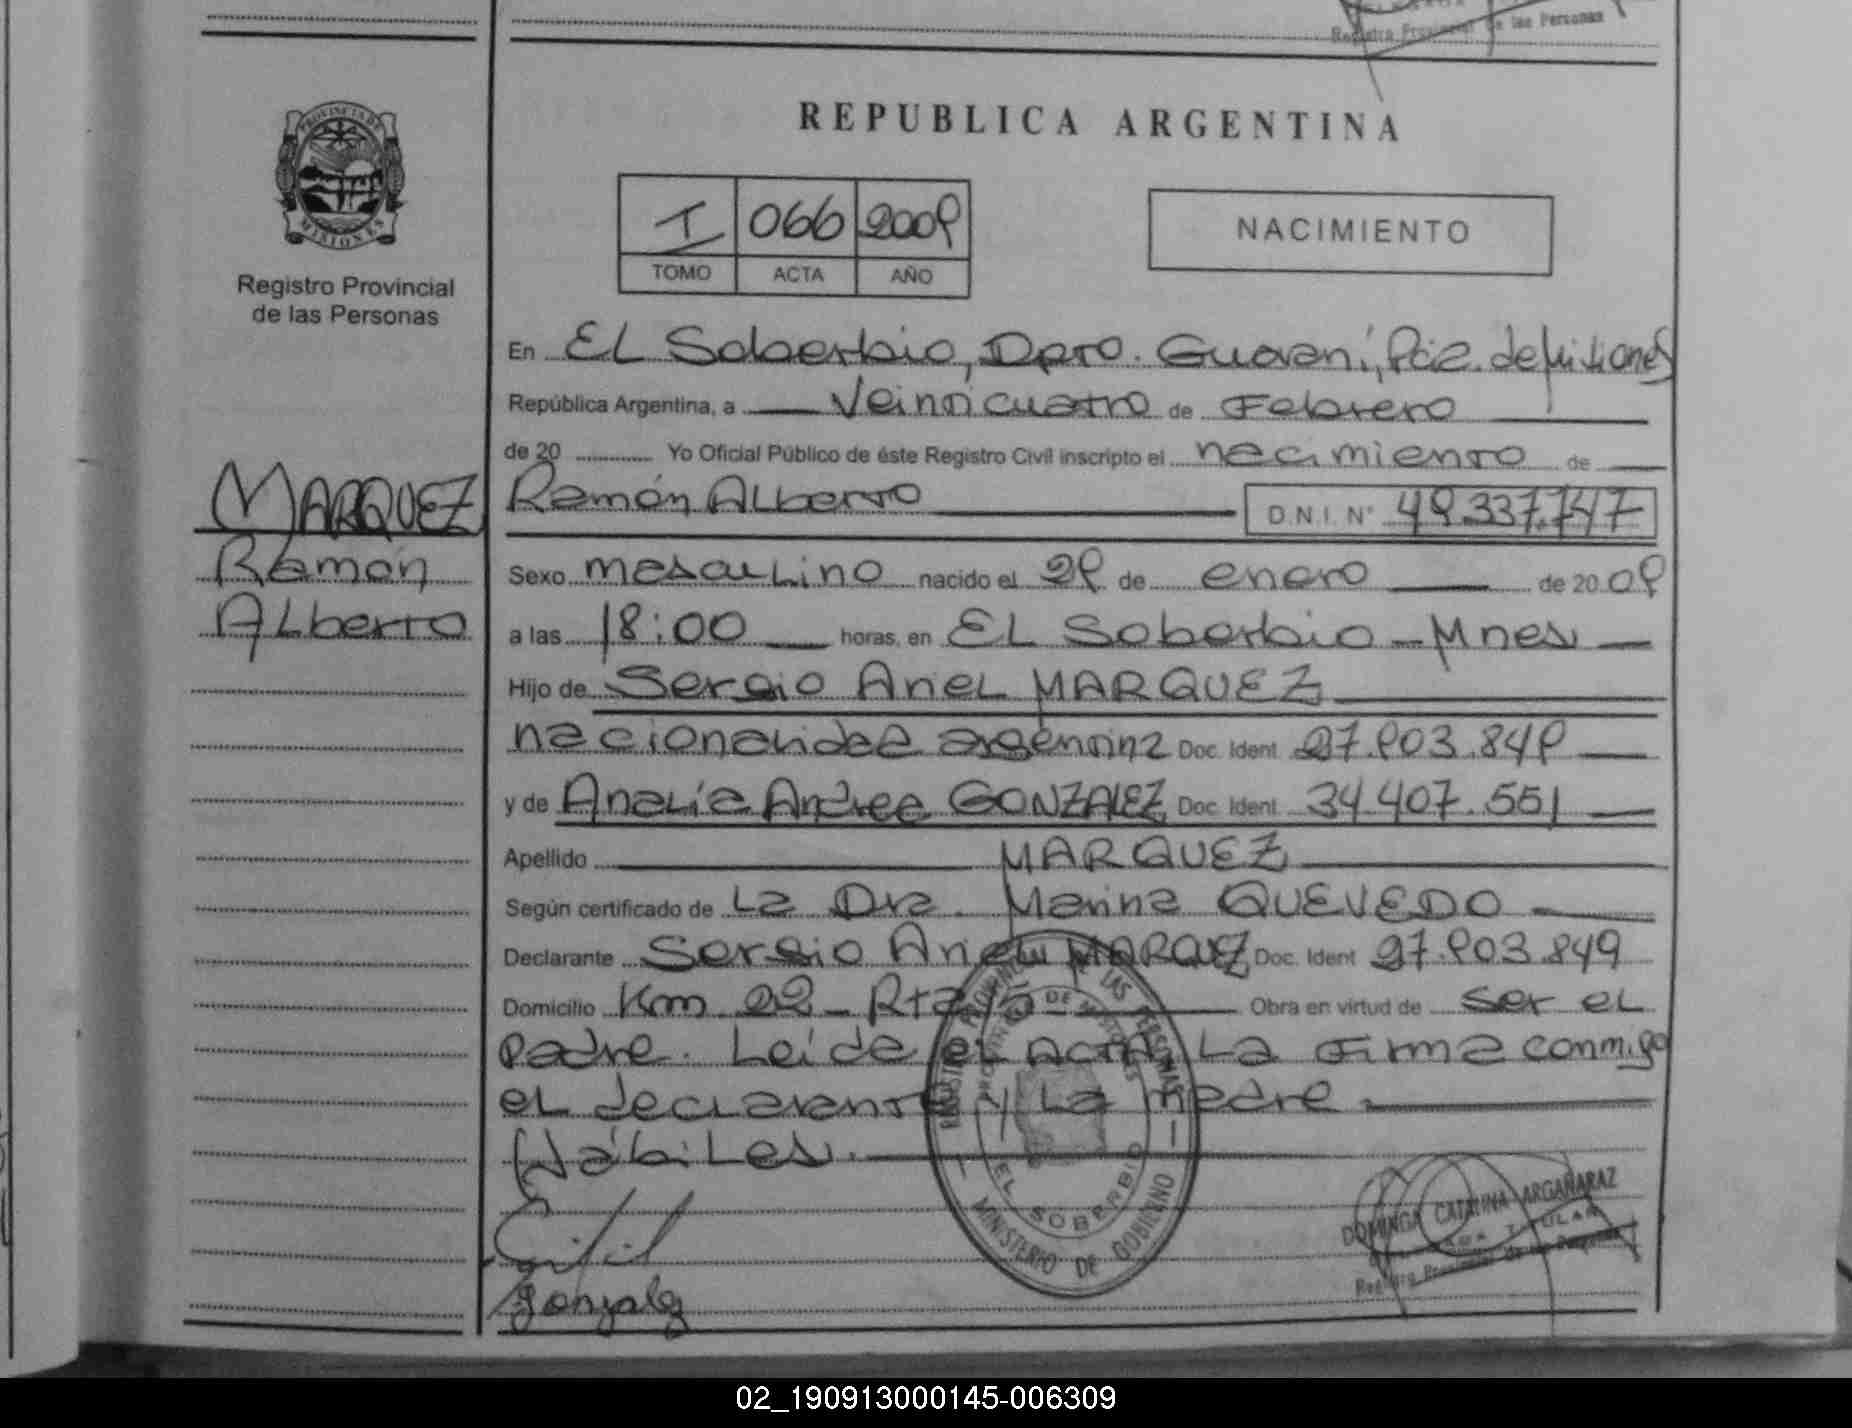 Registro Provincial de las Personas
PROVINCIA DE
MISIONES
Registro Provincial
de las Personas
REPUBLICA ARGENTINA
I 066 2009
TOMO ACTA AÑO
NACIMIENTO
En EL Soberbio, Dpto. Guaraní, Pcia. de Misiones
República Argentina, a Veinticuatro de Febrero
de 20 Yo Oficial Público de éste Registro Civil inscripto el nacimiento de
MARQUEZ
Ramón
Alberto
Ramón Alberto D.N.I. N° 49.337.747
Sexo masculino nacido el 29 de enero de 20 09
a las 18:00 horas, en EL Soberbio - Mnes
Hijo de Sergio Ariel MARQUEZ
nacionalidad argentina Doc. Ident. 27.903.849
y de Analía Andrea GONZALEZ Doc. Ident. 34.407.551
Apellido MARQUEZ
Según certificado de La Dra. Marina QUEVEDO
Declarante Sergio Ariel MARQUEZ Doc. Ident 27.903.849
Domicilio Km. 22 - Rta 15 Obra en virtud de ser el
padre. Leída el Acta La firma conmigo
el declarante y La madre
Hábiles.
REGISTRO PROVINCIAL DE LAS PERSONAS
PROVINCIA DE MISIONES
EL SOBERBIO
MINISTERIO DE GOBIERNO
DOMINGA CATALINA ARGAÑARAZ
TITULAR
Registro Provincial de las Personas
Gonzalez
02_190913000145-006309